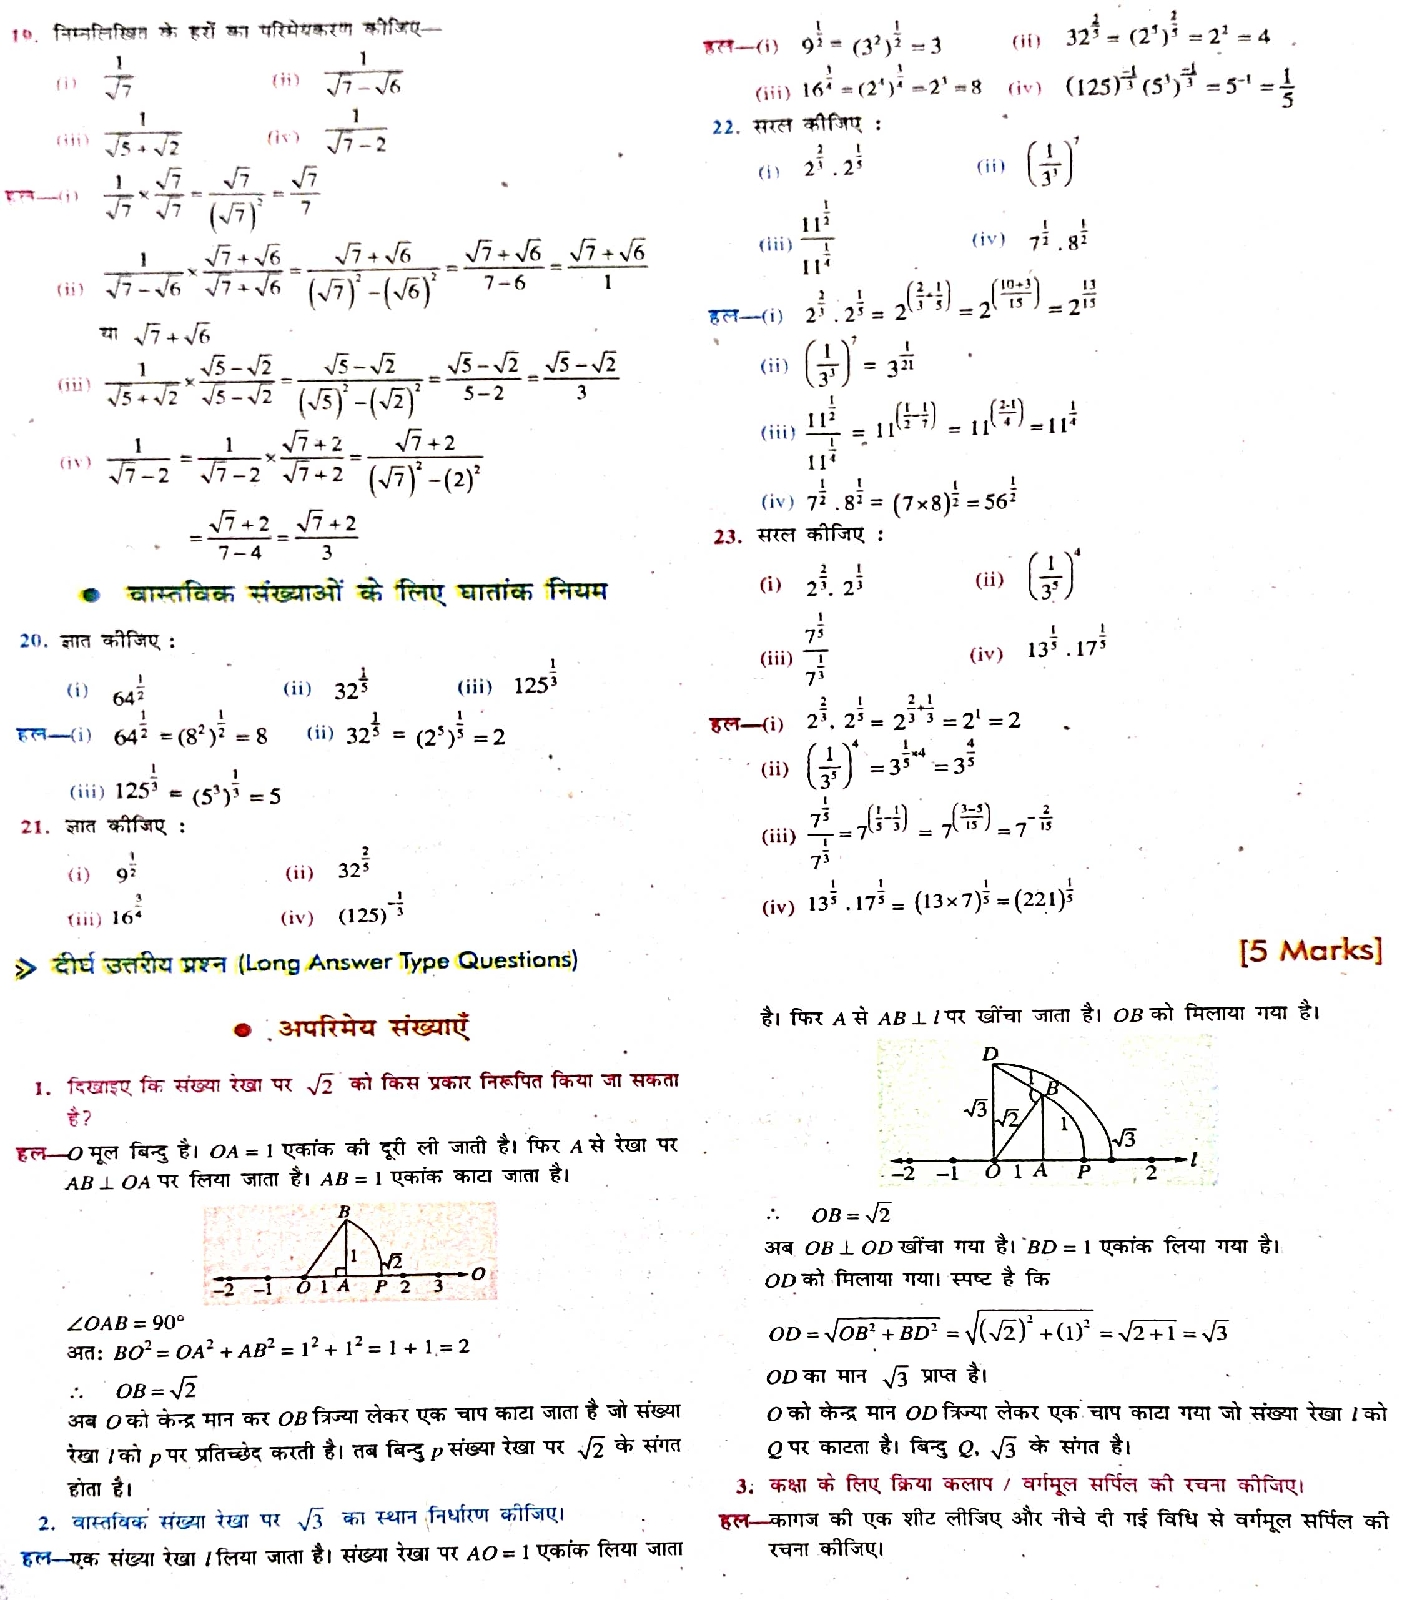 19. निम्नलिखित के हरों का परिमेयकरण कीजिए—
(i) 1/√7 (ii) 1/(√7 − √6)
(iii) 1/(√5 + √2) (iv) 1/(√7 − 2)
हल—(i) 1/√7 × √7/√7 = √7/(√7)² = √7/7
(ii) 1/(√7 − √6) × (√7 + √6)/(√7 + √6) = (√7 + √6)/((√7)² − (√6)²) = (√7 + √6)/(7 − 6) = (√7 + √6)/1
या √7 + √6
(iii) 1/(√5 + √2) × (√5 − √2)/(√5 − √2) = (√5 − √2)/((√5)² − (√2)²) = (√5 − √2)/(5 − 2) = (√5 − √2)/3
(iv) 1/(√7 − 2) = 1/(√7 − 2) × (√7 + 2)/(√7 + 2) = (√7 + 2)/((√7)² − (2)²)
= (√7 + 2)/(7 − 4) = (√7 + 2)/3
● वास्तविक संख्याओं के लिए घातांक नियम
20. ज्ञात कीजिए :
(i) 64^(1/2) (ii) 32^(1/5) (iii) 125^(1/3)
हल—(i) 64^(1/2) = (8²)^(1/2) = 8 (ii) 32^(1/5) = (2⁵)^(1/5) = 2
(iii) 125^(1/3) = (5³)^(1/3) = 5
21. ज्ञात कीजिए :
(i) 9^(1/2) (ii) 32^(2/5)
(iii) 16^(3/4) (iv) (125)^(−1/3)
हल—(i) 9^(1/2) = (3²)^(1/2) = 3 (ii) 32^(2/5) = (2⁵)^(2/5) = 2² = 4
(iii) 16^(3/4) = (2⁴)^(3/4) = 2³ = 8 (iv) (125)^(−1/3) (5³)^(−1/3) = 5⁻¹ = 1/5
22. सरल कीजिए :
(i) 2^(2/3) . 2^(1/5) (ii) (1/3³)⁷
(iii) 11^(1/2)/11^(1/4) (iv) 7^(1/2) . 8^(1/2)
हल—(i) 2^(2/3) . 2^(1/5) = 2^(2/3 + 1/5) = 2^((10+3)/15) = 2^(13/15)
(ii) (1/3³)⁷ = 3^(1/21)
(iii) 11^(1/2)/11^(1/4) = 11^(1/2 − 1/7) = 11^((2-1)/4) = 11^(1/4)
(iv) 7^(1/2) . 8^(1/2) = (7×8)^(1/2) = 56^(1/2)
23. सरल कीजिए :
(i) 2^(2/3) . 2^(1/3) (ii) (1/3⁵)⁴
(iii) 7^(1/5)/7^(1/3) (iv) 13^(1/5) . 17^(1/5)
हल—(i) 2^(2/3) . 2^(1/5) = 2^(2/3 + 1/3) = 2¹ = 2
(ii) (1/3⁵)⁴ = 3^(1/5 ×4) = 3^(4/5)
(iii) 7^(1/5)/7^(1/3) = 7^(1/5 − 1/3) = 7^((3−5)/15) = 7^(−2/15)
(iv) 13^(1/5) . 17^(1/5) = (13×7)^(1/5) = (221)^(1/5)
दीर्घ उत्तरीय प्रश्न (Long Answer Type Questions) [5 Marks]
● अपरिमेय संख्याएँ
1. दिखाइए कि संख्या रेखा पर √2 को किस प्रकार निरूपित किया जा सकता
है?
हल—O मूल बिन्दु है। OA = 1 एकांक की दूरी ली जाती है। फिर A से रेखा पर
AB ⊥ OA पर लिया जाता है। AB = 1 एकांक काटा जाता है।
B
1 √2
−2 −1 O 1 A P 2 3 O
∠OAB = 90°
अतः BO² = OA² + AB² = 1² + 1² = 1 + 1 = 2
∴ OB = √2
अब O को केन्द्र मान कर OB त्रिज्या लेकर एक चाप काटा जाता है जो संख्या
रेखा l को p पर प्रतिच्छेद करती है। तब बिन्दु p संख्या रेखा पर √2 के संगत
होता है।
2. वास्तविक संख्या रेखा पर √3 का स्थान निर्धारण कीजिए।
हल—एक संख्या रेखा l लिया जाता है। संख्या रेखा पर AO = 1 एकांक लिया जाता
है। फिर A से AB ⊥ l पर खींचा जाता है। OB को मिलाया गया है।
D
1 B
√3 √2 1 √3
−2 −1 O 1 A P 2 l
∴ OB = √2
अब OB ⊥ OD खींचा गया है। BD = 1 एकांक लिया गया है।
OD को मिलाया गया। स्पष्ट है कि
OD = √(OB² + BD²) = √((√2)² + (1)²) = √(2+1) = √3
OD का मान √3 प्राप्त है।
O को केन्द्र मान OD त्रिज्या लेकर एक चाप काटा गया जो संख्या रेखा l को
Q पर काटता है। बिन्दु Q, √3 के संगत है।
3. कक्षा के लिए क्रिया कलाप / वर्गमूल सर्पिल की रचना कीजिए।
हल—कागज की एक शीट लीजिए और नीचे दी गई विधि से वर्गमूल सर्पिल की
रचना कीजिए।